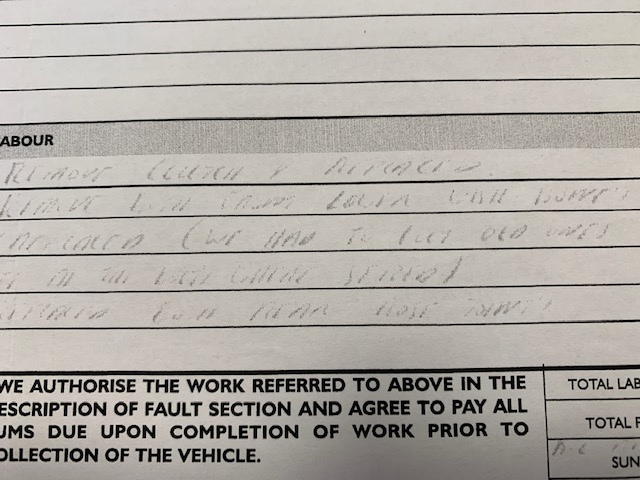 ABOUR
REMOVE CLUTCH & REPLACED
REMOVE BOTH FRONT LOWER
REPLACED (WE HAD TO CUT OLD ONES
SEIZED)
REPLACED BOTH REAR
WE AUTHORISE THE WORK REFERRED TO ABOVE IN THE
ESCRIPTION OF FAULT SECTION AND AGREE TO PAY ALL
UMS DUE UPON COMPLETION OF WORK PRIOR TO
OLLECTION OF THE VEHICLE.
TOTAL LAB
TOTAL P
SUN